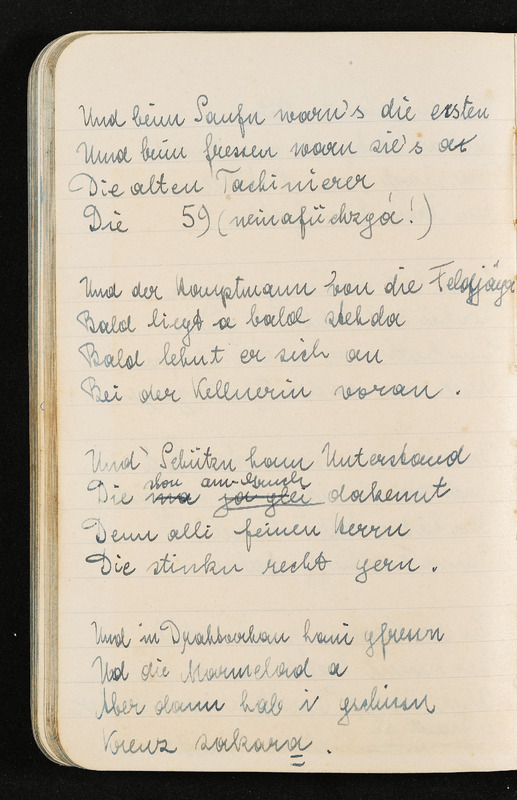 Und beim Saufn warn's die ersten
Und beim fressen warn sie's a
Die alten Tachinierer
Die 59 (neinafüchzga!)
Und der Hauptmann von die Feldjäga
Bald liegt a bald steh da
Bald lehnt er sich an
Bei der Kellnerin voran.
Und Schützn ham Unterstand
schon am Gruch
Die ma ja glei dakennt
Denn alli feinen Herrn
Die stinkn recht gern.
Und in Drahtverhau hani gfressn
Ud die Marmelad a
Aber dann hab i gschissn
Kreuz sakara.